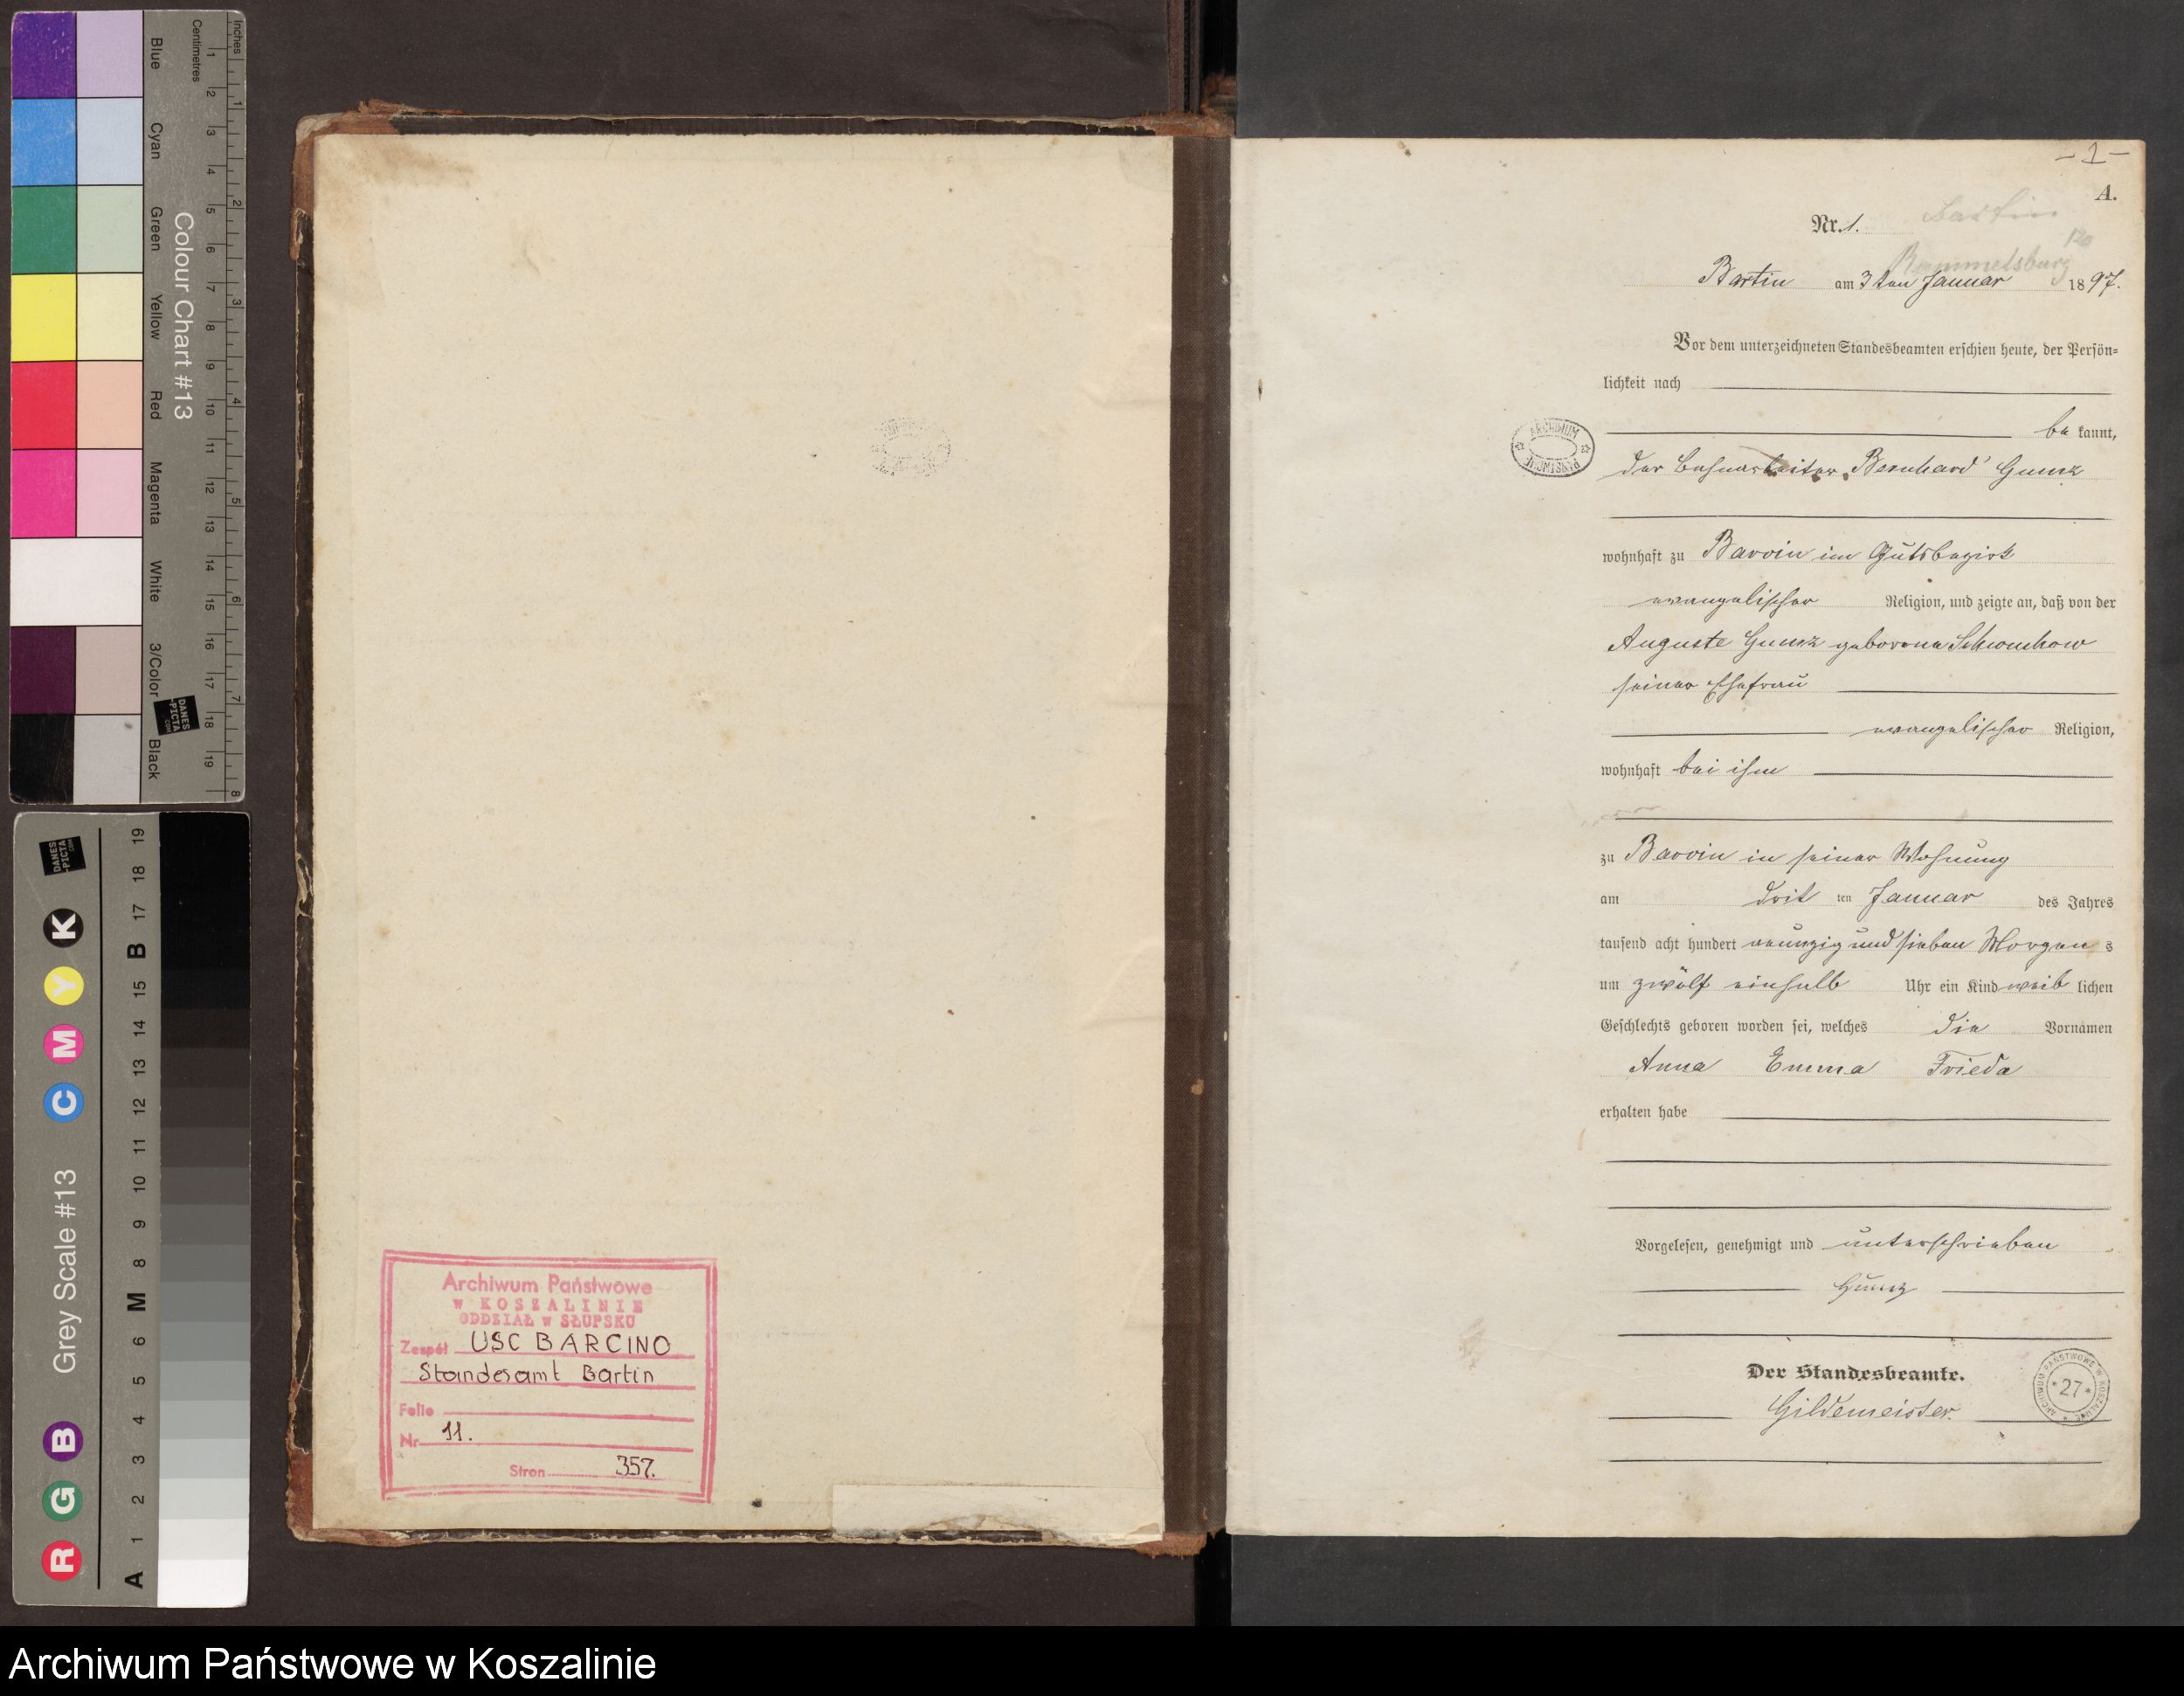 Inches
Centimetres
Colour Chart #13
Blue
Cyan
Green
Yellow
Red
Magenta
White
3/Color
Black
DANES
-PICTA
.COM
1 2 3 4 5 6 7 8 9 10 11 12 13 14 15 16 17 18 19
1 2 3 4 5 6 7 8
Grey Scale #13
R G B C M Y K
A 1 2 3 4 5 6 M 8 9 10 11 12 13 14 15 B 17 18 19
DANES
-PICTA
.COM
Archiwum Państwowe
w KOSZALINIE
ODDZIAŁ w SŁUPSKU
Zespół USC BARCINO
Standesamt Bartin
Folio
Nr 11.
Stron 357.
-1-
A.
Nr. 1.
Bartin
Rummelsburg
Bartin am 3ten Januar 1897.
Vor dem unterzeichneten Standesbeamten erschien heute, der Persön-
lichkeit nach
be kannt,
ARCHIWUM
PAŃSTWOWE
der Bernhard Gumz
wohnhaft zu Barvin im Gutsbezirk
evangelischer Religion, und zeigte an, daß von der
Auguste Gumz geborene Schwuchow
seiner Ehefrau
evangelischer Religion,
wohnhaft bei ihm
zu Barvin in seiner Wohnung
am drit ten Januar des Jahres
tausend acht hundert neunzig und sieben Morgen s
um zwölf einhalb Uhr ein Kind weib lichen
Geschlechts geboren worden sei, welches die Vornamen
Anna Emma Frieda
erhalten habe
Vorgelesen, genehmigt und unterschrieben
Gumz
Der Standesbeamte.
Gildemeister.
ARCHIWUM PAŃSTWOWE W KOSZALINIE
*27*
Archiwum Państwowe w Koszalinie